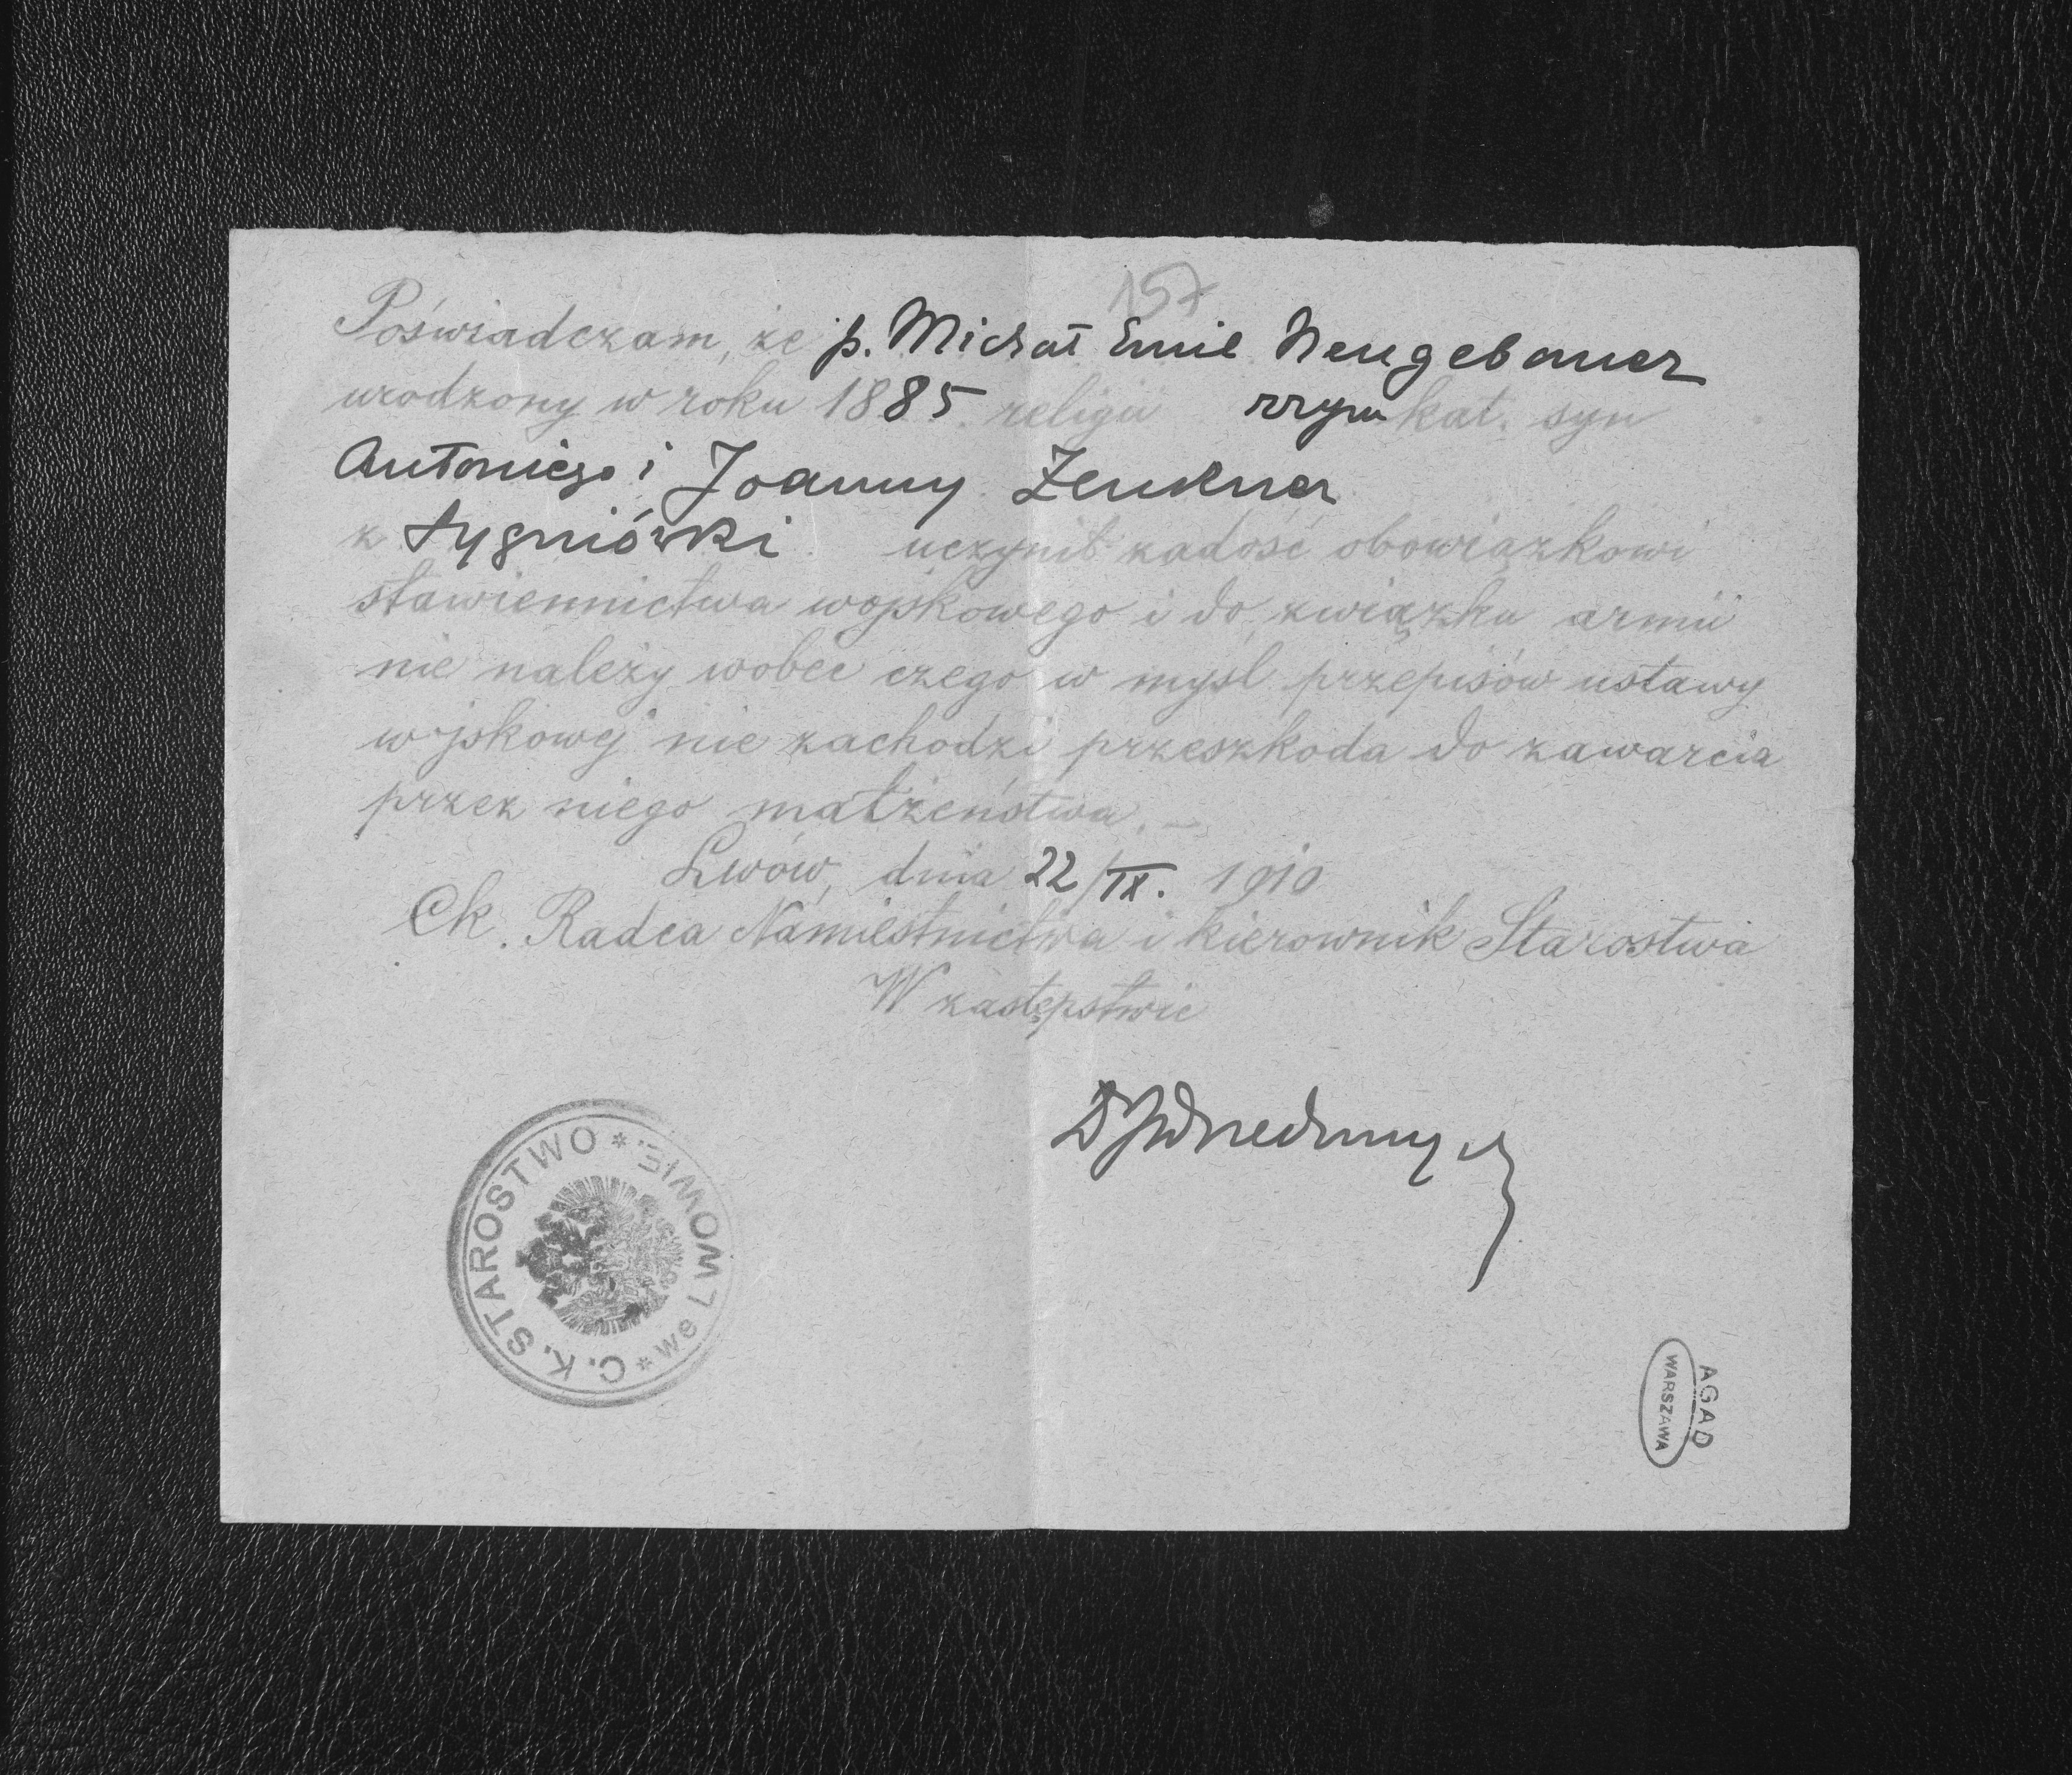 157
Poświadczam, że p. Michał Emil Neugebauer
urodzony w roku 1885. religii rzym kat. syn
Antoniego i Joanny Zenkner
z Sygniówki uczynił zadość obowiązkowi
stawiennictwa wojskowego i do związku armii
nie należy wobec czego w myśl przepisów ustawy
wojskowej nie zachodzi przeszkoda do zawarcia
przez niego małżeństwa. –
Lwów, dnia 22/IX. 1910
Ck. Radca Namiestnictwa i kierownik Starostwa
W zastępstwie
C. K. STAROSTWO * we LWOWIE. *
AGAD
WARSZAWA